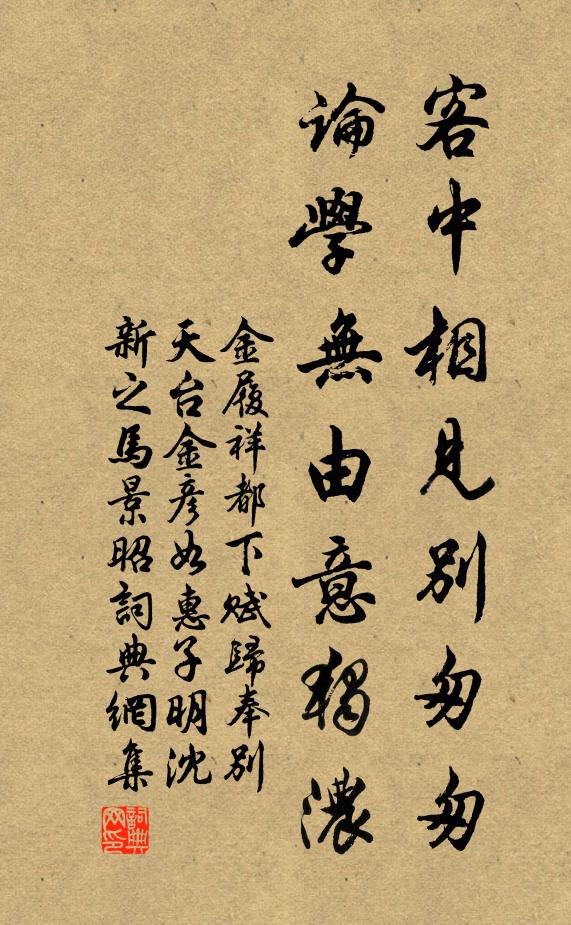 客中相見別匆匆
論學無由意獨濃
金履祥都下賦歸奉別
天台金彦如惠子明沈
新之馬景昭詞典網集
詞典网印